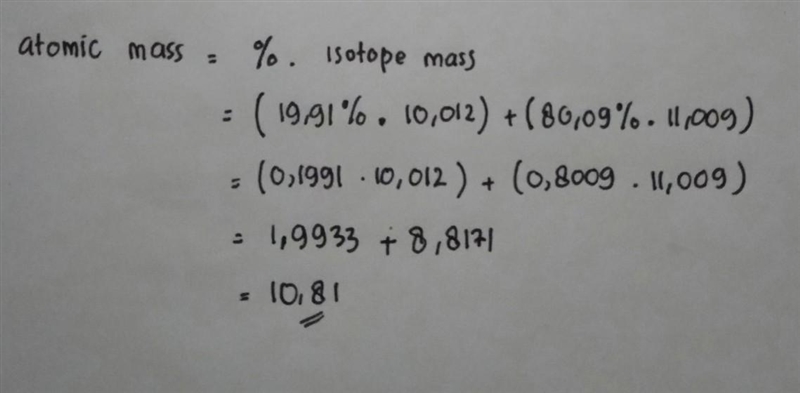 atomic mass = %. isotope mass
= (19,91% . 10,012) + (80,09% . 11,009)
= (0,1991 . 10,012) + (0,8009 . 11,009)
= 1,9933 + 8,8171
= 10,81